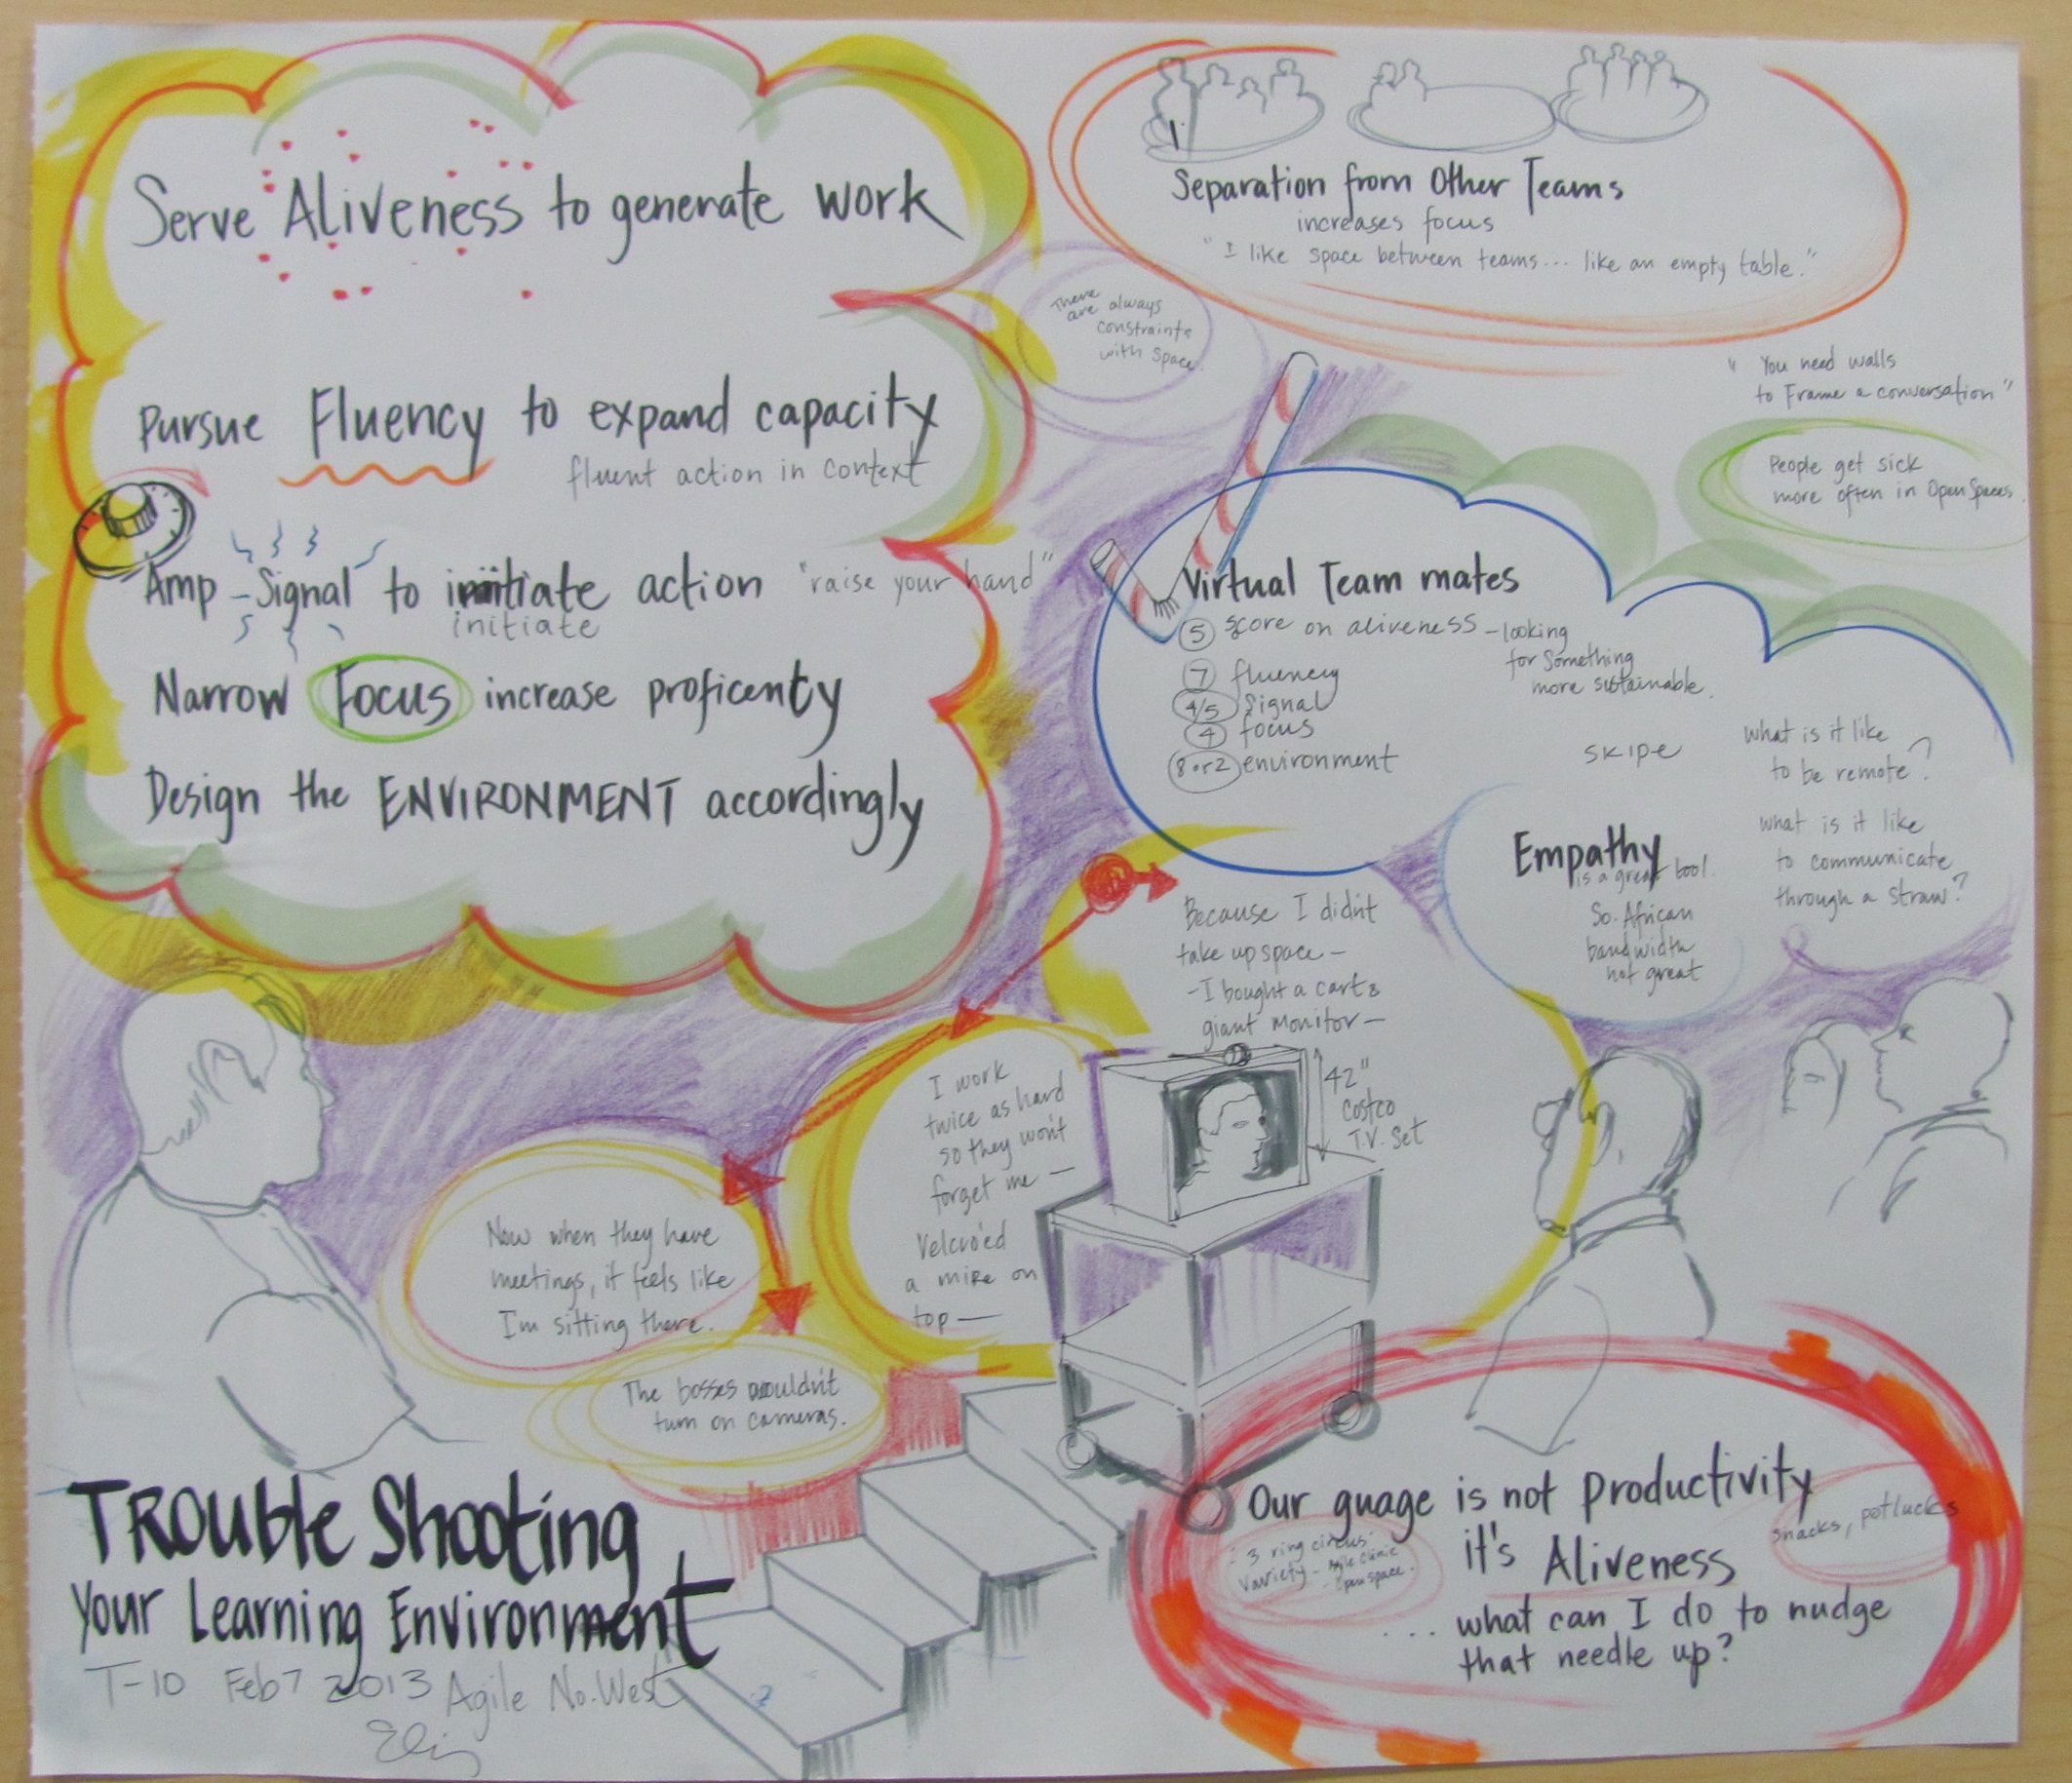 Serve Aliveness to generate work
Pursue Fluency to expand capacity
fluent action in context
Amp Signal to initiate action "raise your hand"
initiate
Narrow Focus increase proficenty
Design the ENVIRONMENT accordingly
Separation from Other Teams
increases focus
"I like space between teams... like an empty table."
There
are always
constraints
with space.
"You need walls
to Frame a conversation"
People get sick
more often in Open Spaces
Virtual Team mates
5 score on aliveness - looking
for something
more sustainable.
7 fluency
4/5 Signal
4 focus
8 or 2 environment
skipe
what is it like
to be remote?
what is it like
to communicate
through a straw?
Empathy
is a great tool.
So. African
bandwidth
not great
Because I didn't
take up space -
- I bought a cart &
giant monitor -
42"
Costco
T.V. Set
I work
twice as hard
so they won't
forget me -
Velcro'ed
a mike on
top -
Now when they have
meetings, it feels like
I'm sitting there.
The bosses wouldn't
turn on cameras.
Trouble Shooting
Your Learning Environment
T-10 Feb 7 2013 Agile No. West
Our guage is not productivity
it's Aliveness
snacks, potlucks
- 3 ring circus
Variety - Agile Clinic
- Open space.
... what can I do to nudge
that needle up?